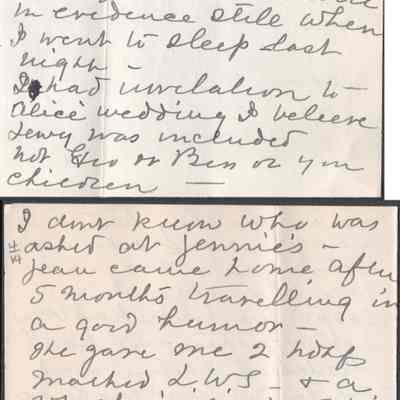 in evidence still when
I went to sleep last
night -
I had invitation to
Alice wedding I believe
Lewy was included
not Geo or Ben or your
children —
I dont know who was
asked at Jennie's -
Jean came home after
5 months travelling in
a good humor -
She gave me 2 hdkfs
marked L.W.S - & a